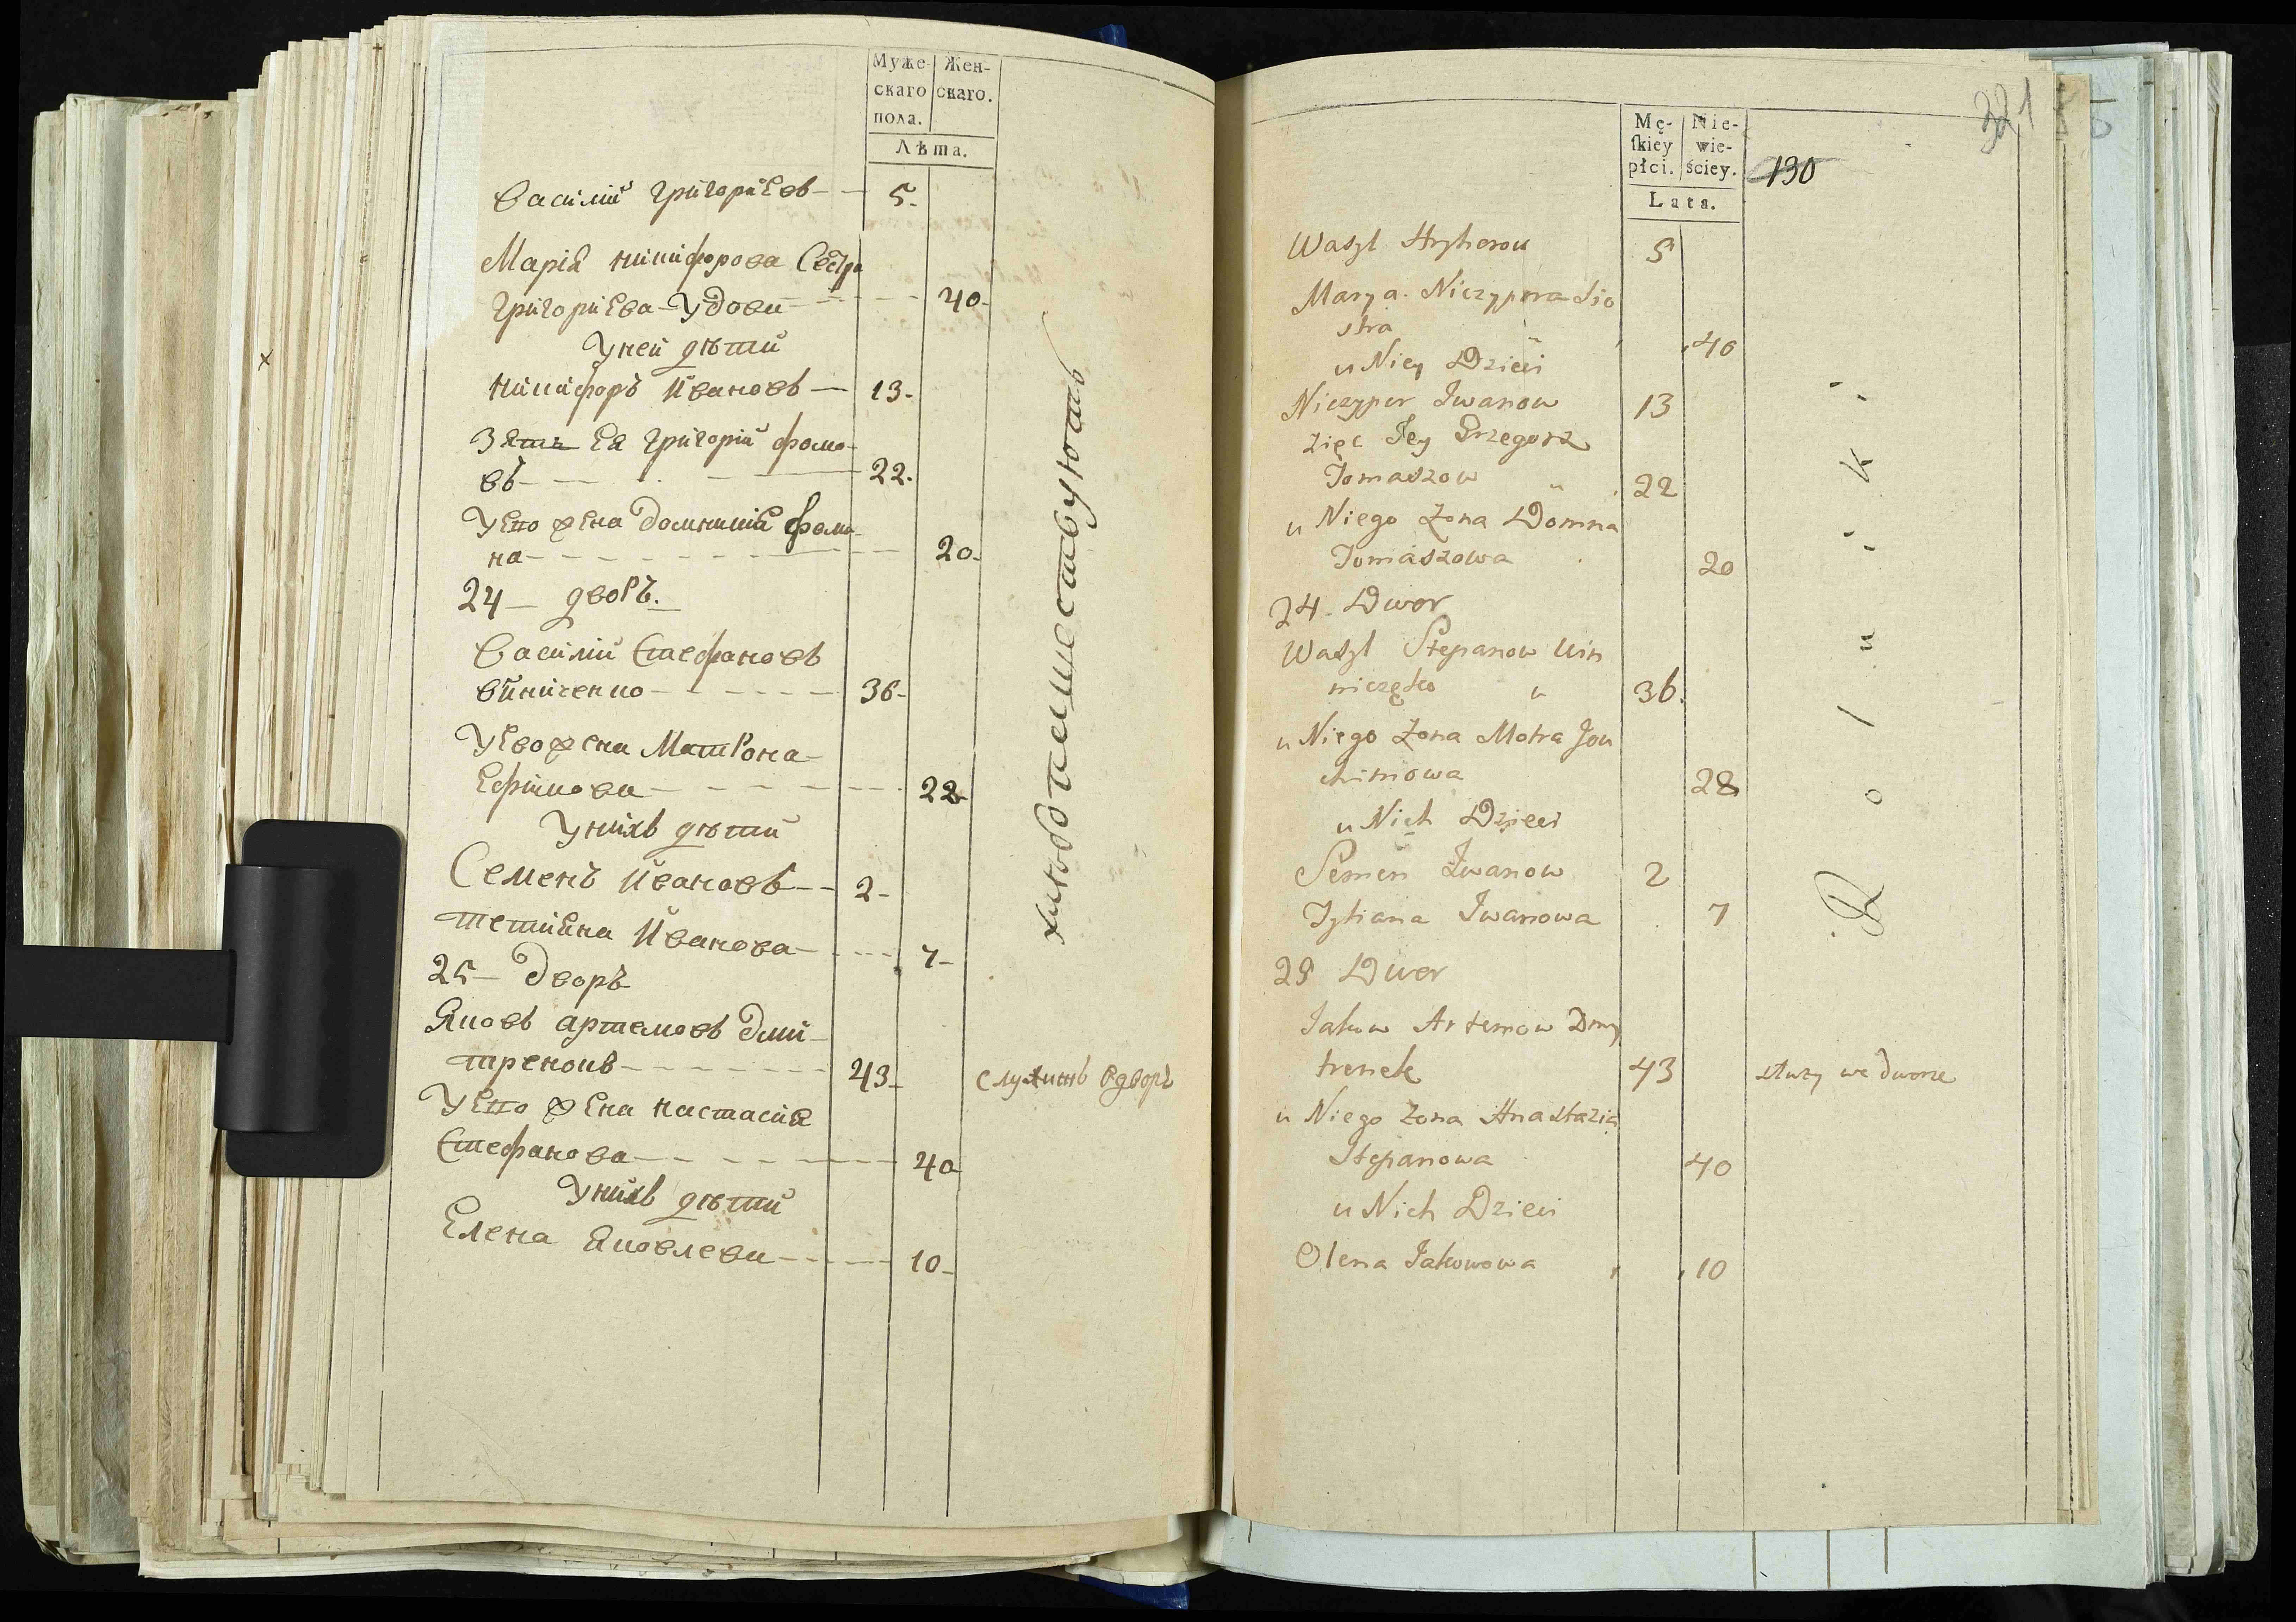 Муже- Жен-
скаго скаго.
пола.
Лѣта.
Василий Григориевъ 5.
Мария Никифорова Сестра
Григориева Удова 40
У ней дѣти
Никифоръ Ивановъ 13
Зять Ея Григорий Фомо-
въ 22.
У Его жена Домникия Фоми-
на 20
24 дворъ.
Василий Стефановъ
Виниченко 36
У Его жена Матрона
Ефимова 22
У нихъ дѣти
Семенъ Ивановъ 2
Тетияна Иванова 7
25 Дворъ
Яковъ Артемовъ Дми-
тренокъ 43 служитъ в дворѣ
У Его жена Настасия
Стефанова 40
У нихъ дѣти
Елена Яковлева 10
хлѣбопашествуютъ
321
130
Mę- Nie-
skiéy wie-
płci. ściey.
Lata.
Wasyl Hryhorow 5
Marya Niczyporowa Sio
stra 40
u Niey Dzieci
Niczypor Iwanow 13
zięć Jey Grzegorz
Tomaszow 22
u Niego Zona Domna
Tomaszowa 20
24 Dwor
Wasyl Stepanow Win
niczęko 36
u Niego Zona Motra Joa
chimowa 28
u Nich Dzieci
Semen Iwanow 2
Tytiana Iwanowa 7
25 Dwor
Jakow Artemow Dmy
trenek 43 służy we dworze
u Niego Zona Anastazia
Stepanowa 40
u Nich Dzieci
Olena Jakowowa 10
Rolniki